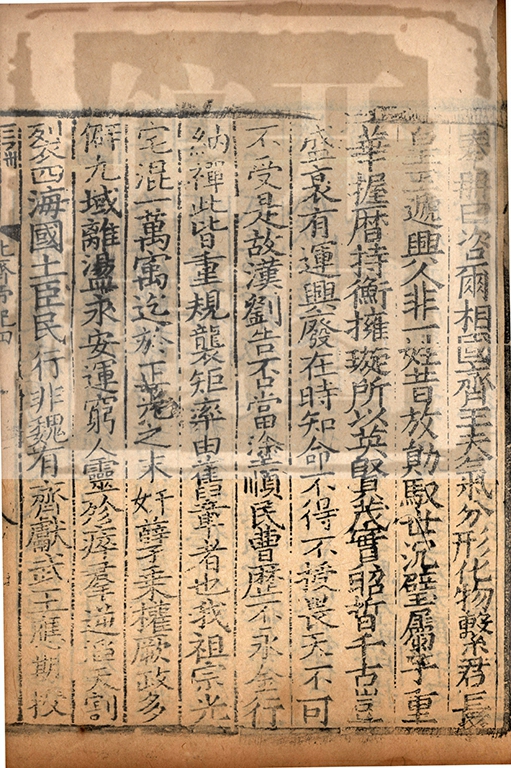 奏冊曰咨爾相國齊王夫氣分形化物繫君長
皇王遞興人非一姓昔放勛馭世沉璧屬子重
華握曆持衡擁璇所以英賢茂實昭晢千古豈
盛衰有運興廢在時知命不得不授畏天不可
不受是故漢劉告否當塗順民曹歷不永金行
納禪此皆重規襲矩率由舊章者也我祖宗光
宅混一萬寓迄於正光之末奸孽乗權厥政多
僻九域離盪永安運窮人靈殄瘁羣逆滔天割
裂四海國土臣民行非魏有齊獻武王應期授